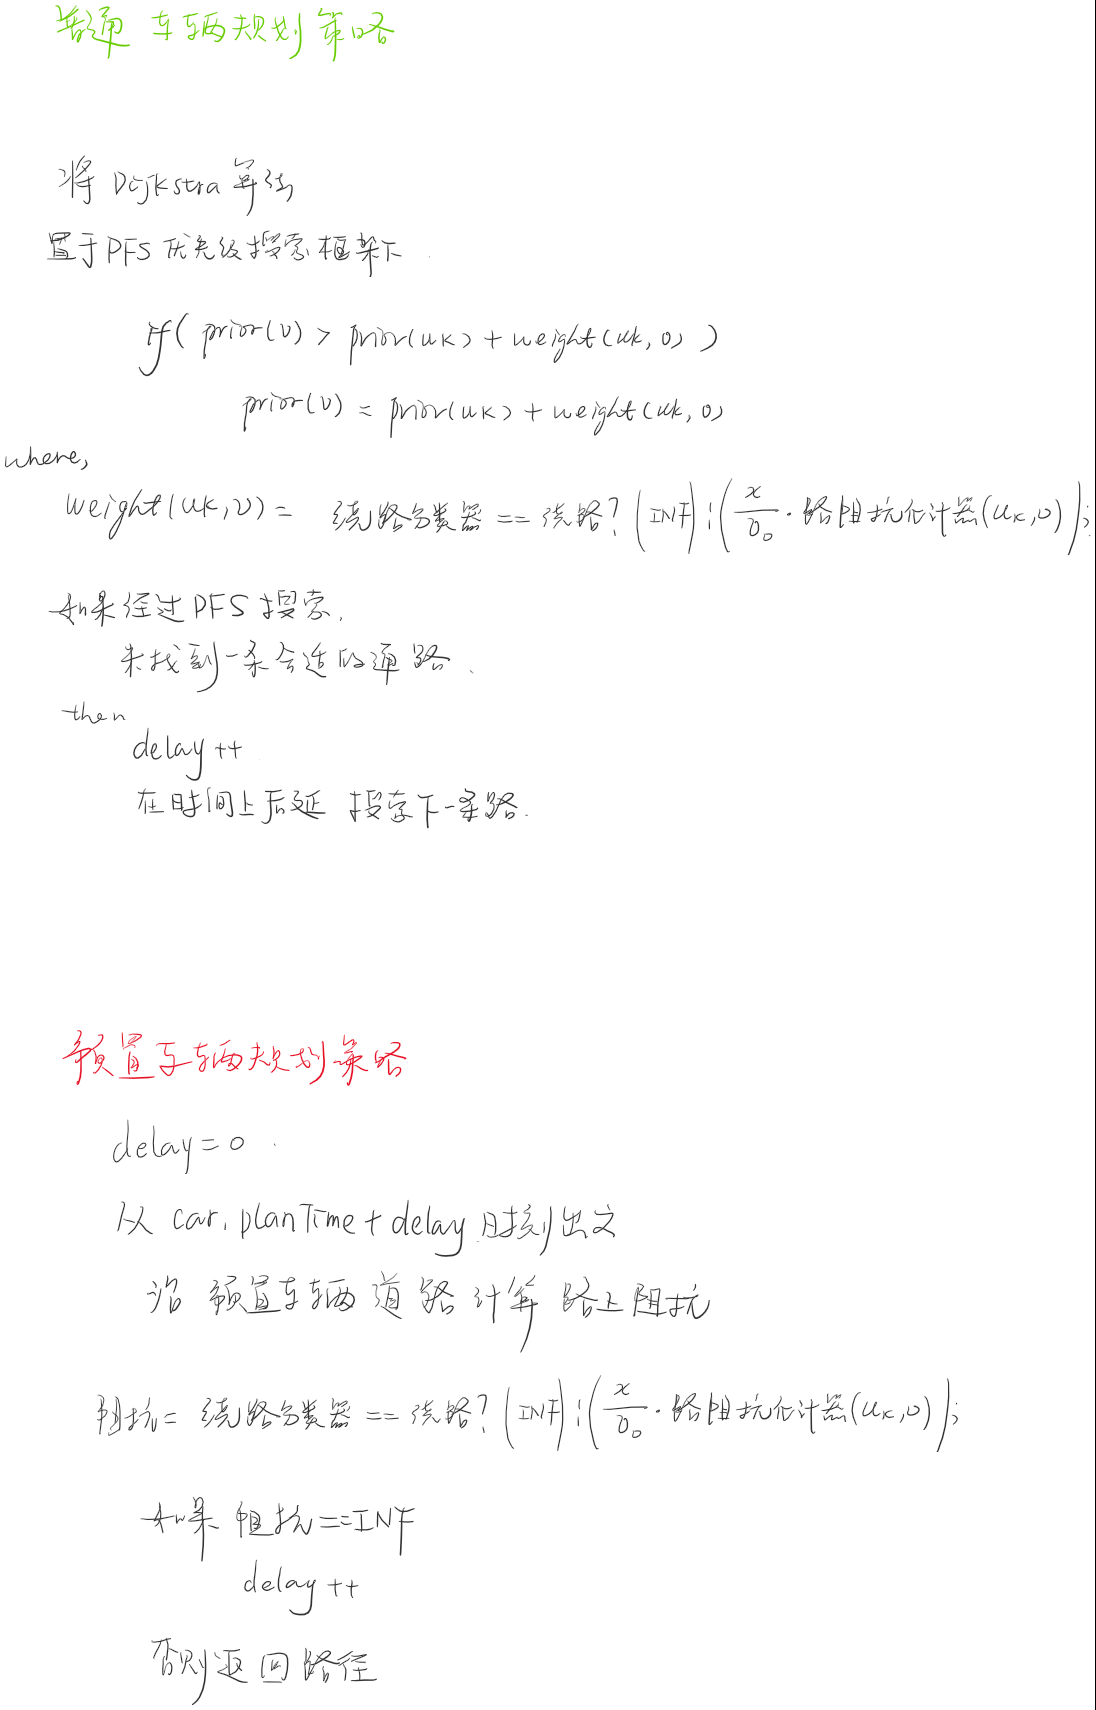 普通车辆规划策略
将Dijkstra算法
置于PFS优先级搜索框架下.
if( prior(v) > prior(uk) + weight(uk, v) )
prior(v) = prior(uk) + weight(uk, v)
where,
weight(uk, v) = 绕路分类器 == 绕路? (INF) : (x/v₀ · 路阻抗估计器(uk, v));
如果经过PFS搜索,
未找到一条合适的通路.
then
delay++
在时间上后延 搜索下一条路.
预置车辆规划策略
delay=0.
从 car.planTime + delay 时刻出发
沿 预置车辆道路 计算 路上阻抗
阻抗 = 绕路分类器 == 绕路? (INF) : (x/v₀ · 路阻抗估计器(uk, v));
如果 阻抗==INF
delay++
否则返回路径